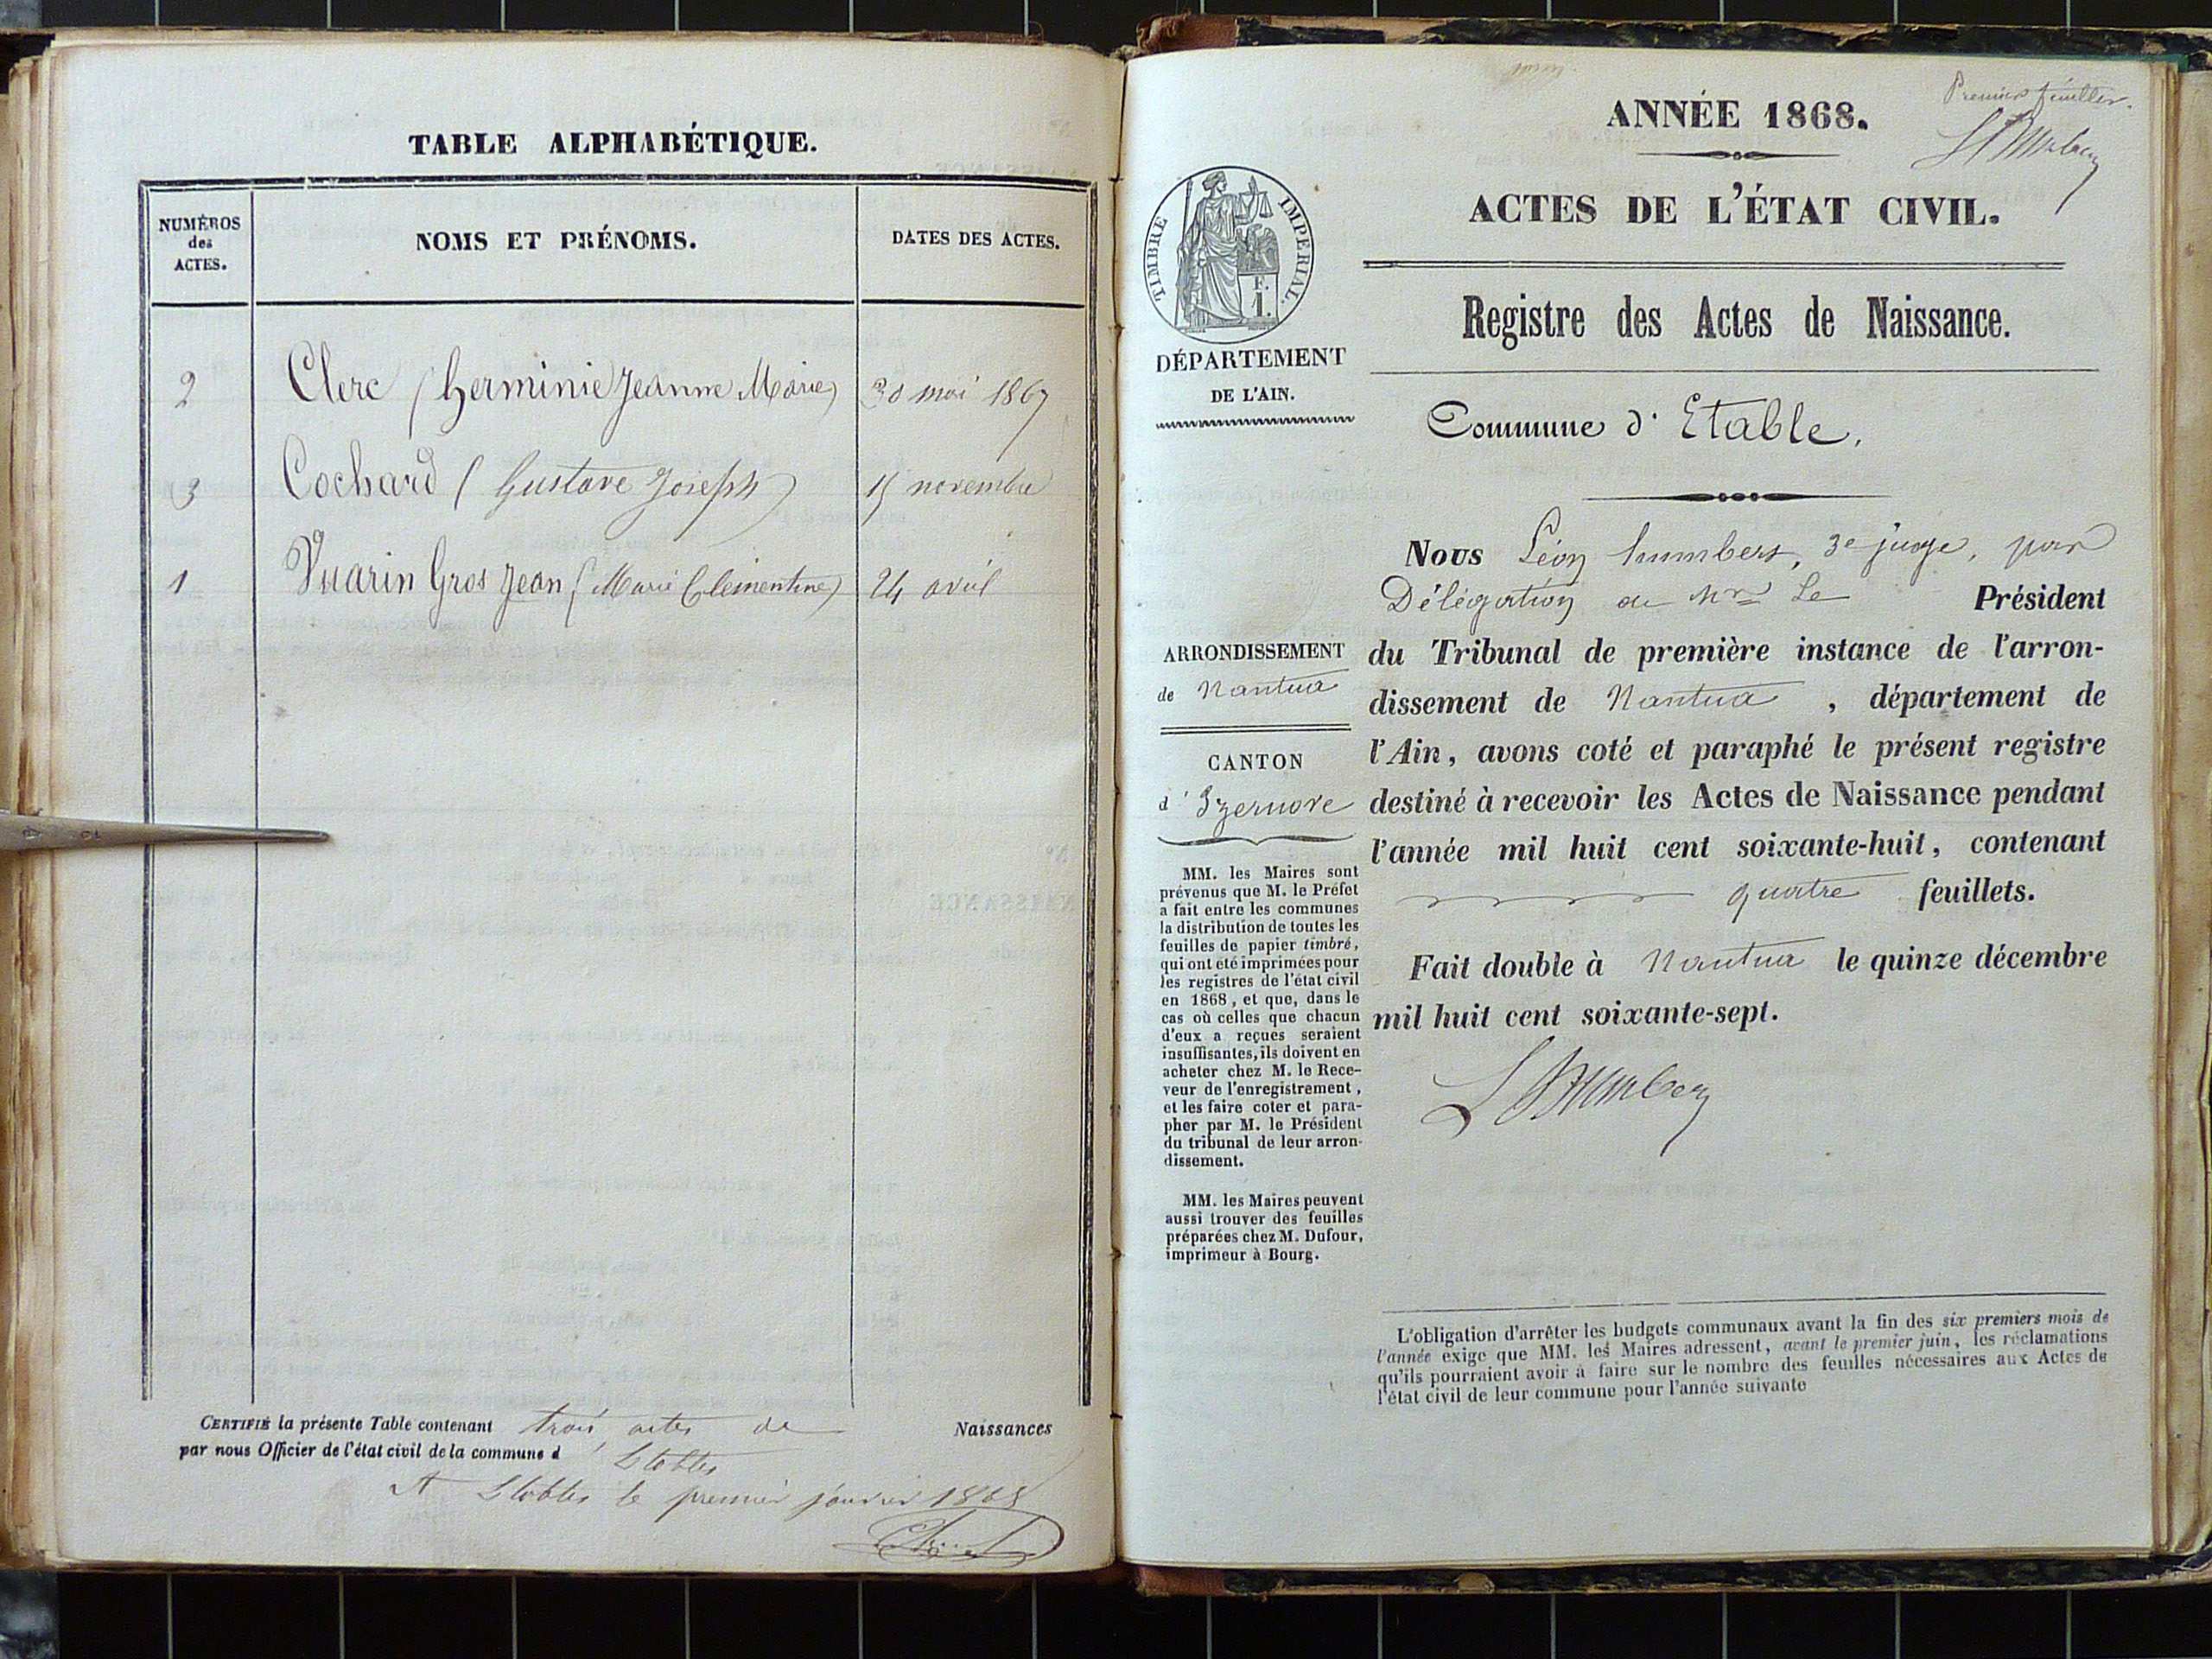 TABLE ALPHABÉTIQUE.
NUMÉROS
des
ACTES.
NOMS ET PRÉNOMS.
DATES DES ACTES.
2 Clerc (herminie Jeanne Marie) 30 mai 1867
3 Cochard (Gustave Joseph) 15 novembre
1 Vuarin Gros Jean (Marie Clementine) 24 avril
CERTIFIÉ la présente Table contenant trois actes de Naissances
par nous Officier de l'état civil de la commune d' Etables
A Etables le premier janvier 1868
Premier feuillet.
ANNÉE 1868.
ACTES DE L'ÉTAT CIVIL.
TIMBRE IMPERIAL.
F.
1.
DÉPARTEMENT
DE L'AIN.
Registre des Actes de Naissance.
Commune d' Etable.
ARRONDISSEMENT
de Nantua
CANTON
d' Izernore
MM. les Maires sont
prévenus que M. le Préfet
a fait entre les communes
la distribution de toutes les
feuilles de papier timbré,
qui ont été imprimées pour
les registres de l'état civil
en 1868, et que, dans le
cas où celles que chacun
d'eux a reçues seraient
insuffisantes, ils doivent en
acheter chez M. le Rece-
veur de l'enregistrement,
et les faire coter et para-
pher par M. le Président
du tribunal de leur arron-
dissement.
MM. les Maires peuvent
aussi trouver des feuilles
préparées chez M. Dufour,
imprimeur à Bourg.
Nous Léon humbert, 3e juge, par
Délégation de Mr Le Président
du Tribunal de première instance de l'arron-
dissement de Nantua, département de
l'Ain, avons coté et paraphé le présent registre
destiné à recevoir les Actes de Naissance pendant
l'année mil huit cent soixante-huit, contenant
quatre feuillets.
Fait double à Nantua le quinze décembre
mil huit cent soixante-sept.
L'obligation d'arrêter les budgets communaux avant la fin des six premiers mois de
l'année exige que MM. les Maires adressent, avant le premier juin, les réclamations
qu'ils pourraient avoir à faire sur le nombre des feuilles nécessaires aux Actes de
l'état civil de leur commune pour l'année suivante